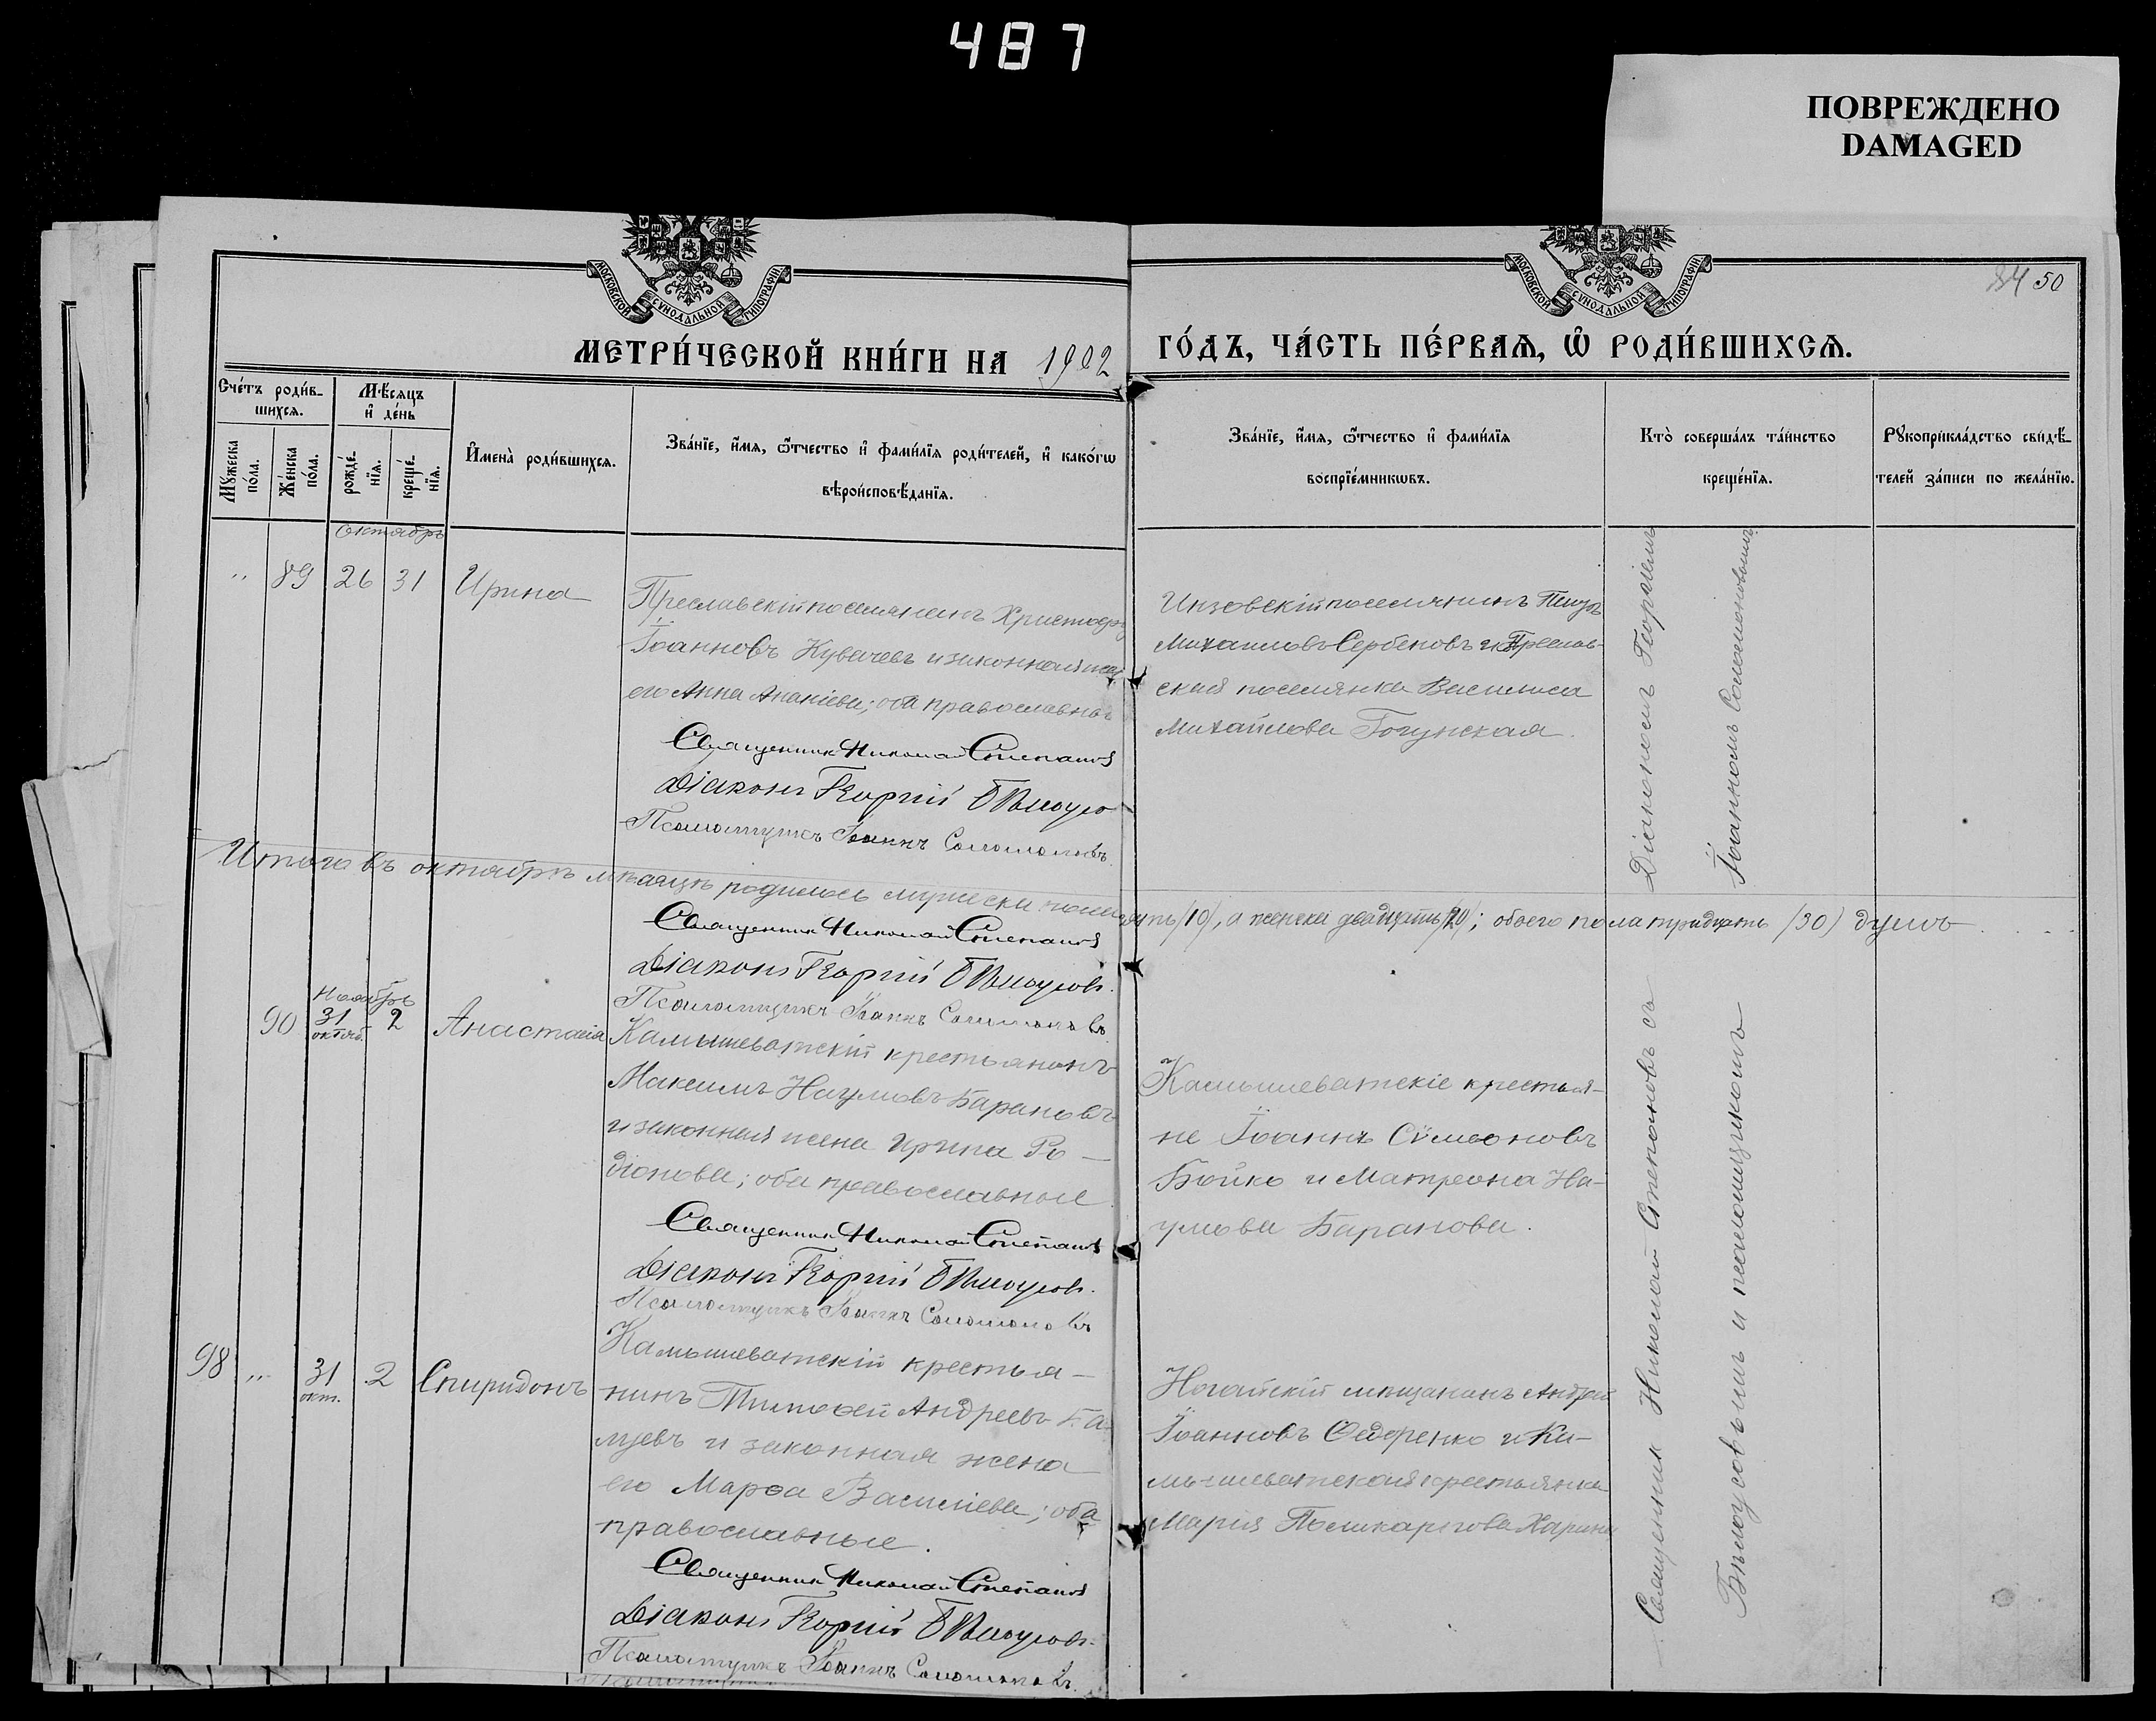 487
ПОВРЕЖДЕНО
DAMAGED
МОСКОВСКОЙ СѴНОДАЛЬНОЙ ТИПОГРАФІИ
МОСКОВСКОЙ СѴНОДАЛЬНОЙ ТИПОГРАФІИ
84 50
МЕТРИ́ЧЕСКОЙ КНИ́ГИ НА 1902
ГО́ДЪ, ЧА́СТЬ ПЕ́РВАѦ, Ѡ РОДИ́ВШИХСѦ.
Сче́тъ роди́в-
шихсѧ.
Мѣ́сѧцъ
и҆ де́нь
Мꙋ́жеска
по́ла.
Же́нска
по́ла.
рожде́-
нїѧ.
креще́-
нїѧ.
И҆мена̀ роди́вшихсѧ.
Зва́нїе, и҆́мѧ, ѻ҆́тчество и҆ фами́лїѧ роди́телей, и҆ како́гѡ
вѣроисповѣ́данїѧ.
Зва́нїе, и҆́мѧ, ѻ҆́тчество и҆ фами́лїѧ
воспрїе́мникѡвъ.
Кто̀ соверша́лъ та́инство
креще́нїѧ.
Рꙋкоприкла́дство свидѣ́-
телей за́писи по жела́нїю.
Октябрь
" 89 26 31 Ирина
Преславскій поселянинъ Христофоръ
Іоанновъ Кувачевъ и законная жена
его Анна Ананіева; оба православные
Священникъ Николай Степановъ
Діаконъ Георгій Бѣлоусовъ
Псаломщикъ Іоаннъ Соломоновъ
Инзовскій поселянинъ
Михаиловъ Сербеновъ и Преслав-
ская поселянка Василиса
Михайлова Гогунская.
Діакономъ Георгіемъ
Іоанномъ Соломоновымъ
Итого въ октябрѣ мѣсяцѣ родилось мужеска пола десять /10/, а женска двадцать /20/; обоего пола тридцать /30/ душъ
Священникъ Николай Степановъ
Діаконъ Георгій Бѣлоусовъ.
Псаломщикъ Іоаннъ Соломоновъ
Ноябрь
90 31 октяб. 2 Анастасія
Камышеватскій крестьянинъ
Максимъ Наумовъ Барановъ
и законная жена Ирина Ро-
діонова; оба православные
Священникъ Николай Степановъ
Діаконъ Георгій Бѣлоусовъ.
Псаломщикъ Іоаннъ Соломоновъ
Камышеватскіе крестья-
не Іоаннъ Сѵмеоновъ
Бойко и Матрона На-
умова Баранова.
98 " 31 окт. 2 Спиридонъ
Камышеватскій крестья-
нинъ Тимоѳей Андреевъ
и законная жена
его Марѳа Василіева; оба
православные.
Священникъ Николай Степановъ
Діаконъ Георгій Бѣлоусовъ.
Псаломщикъ Іоаннъ Соломоновъ.
Ногайскій мѣщанинъ Андрей
Іоанновъ Ѳедоренко и Ка-
мышеватская крестьянка
Марія Поликарпова
Священникъ Николай Степановъ съ
Бѣлоусовымъ и псаломщикомъ